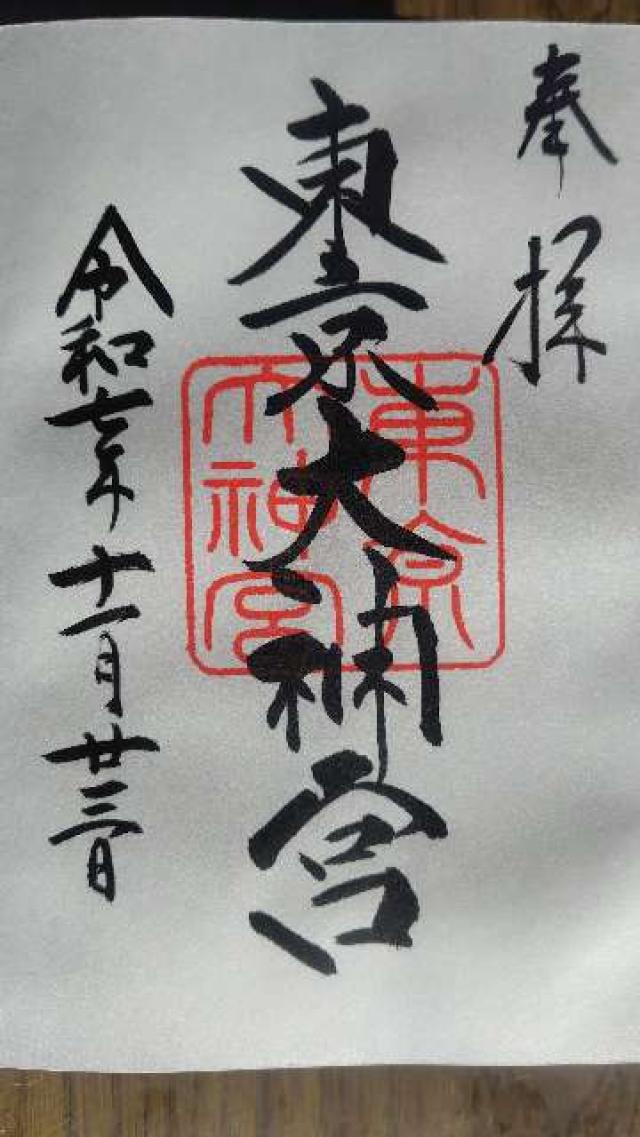 奉拝
東京大神宮
東京
大神宮
令和七年十一月廿三日